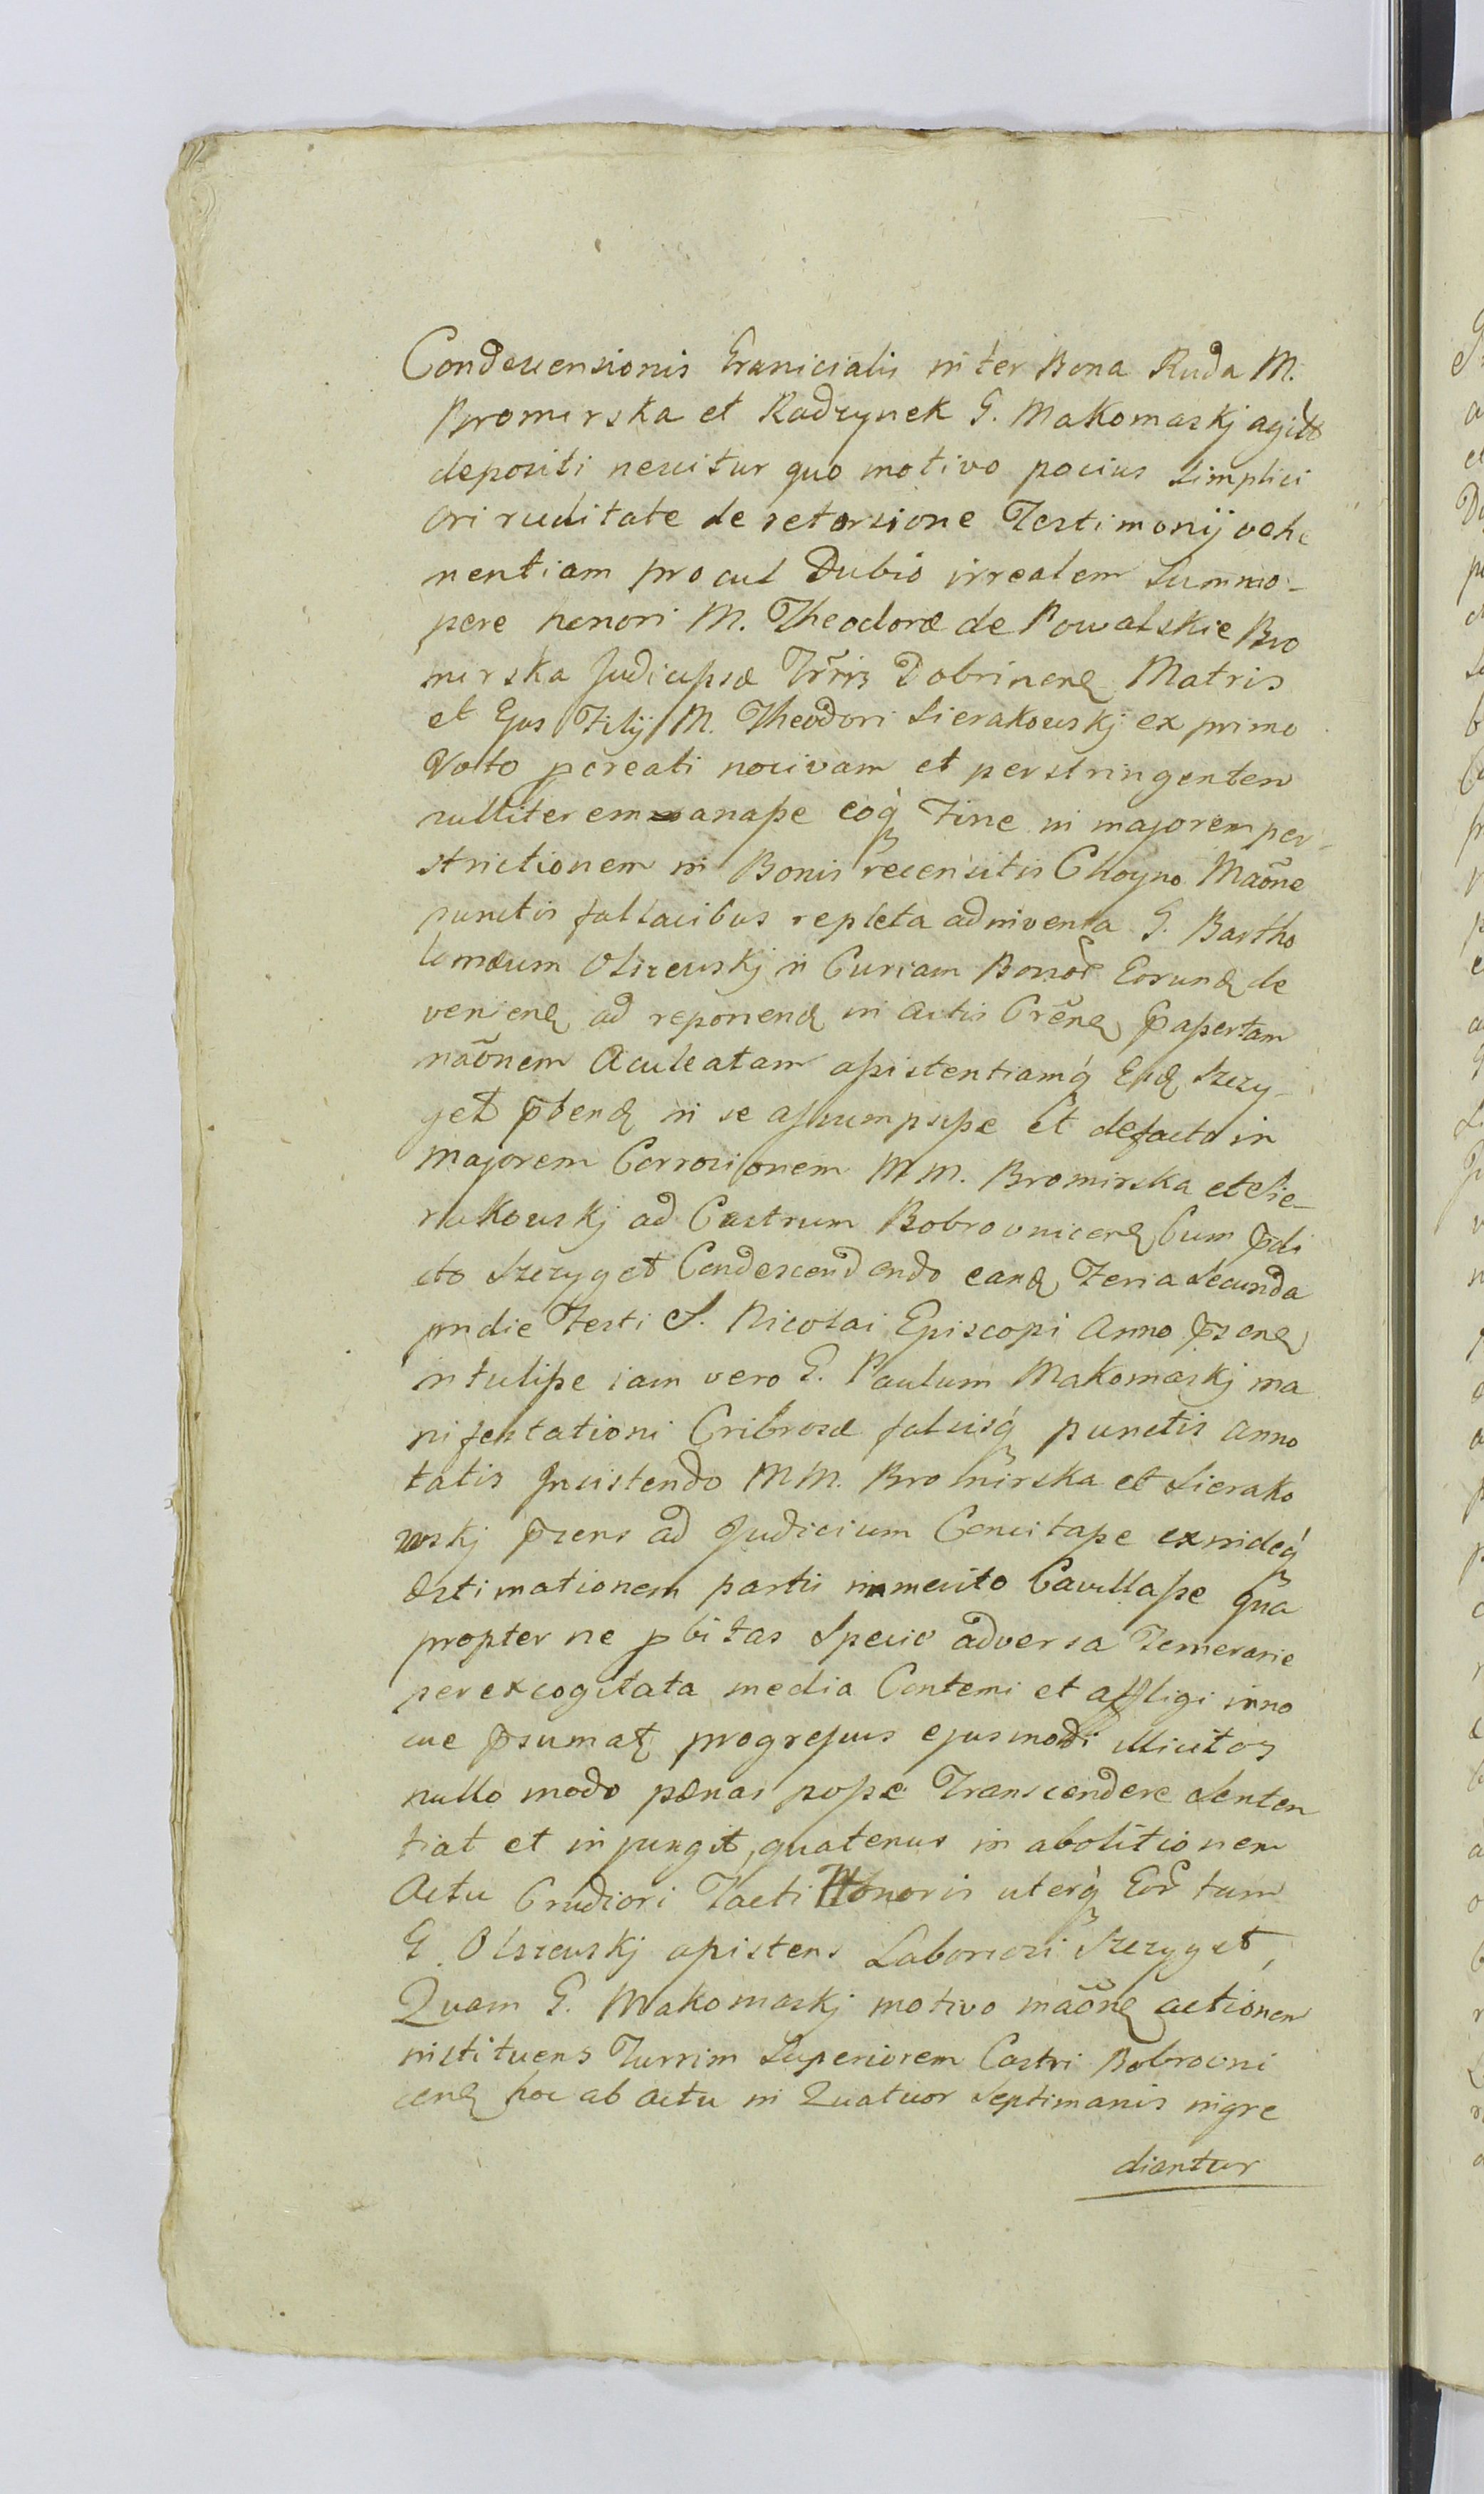 Condescensionis Granicialis inter Bona Ruda M.
Bromirska et Radzynek G. Makomaskj agitt
depositi nescitur quo motivo pocius simplici
ori ruditate de retorsione Testimonij vehe
mentiam procul Dubio irrealem Summo-
pere honori M. Theodoræ de Powalskie Bro
mirska Judicissæ Trris Dobrinens Matris
et Ejus Filij M. Theodori Sierakowskj ex primo
Voto pcreati nocivam et perstringentem
nulliter emanasse eoq Fine in majorem per-
strictionem in Bonis recensitis Choyno Maone
punctis fallacibus repleta adinventa G. Bartho
lomæum Olszewskj in Curiam Bonor Eorund de
veniens ad reponend in Actis Crens p assertam
naonem Aculeatam assistentiamq Eid Szczy-
get pbend in se assumpsisse et defacto in
majorem Corrosionem MM. Bromirska et Sie-
rakowskj ad Castrum Bobrovnicens Cum pdi
cto Szczyget Condescendendo eand Feria Secunda
pridie Festi S. Nicolai Episcopi Anno psens
intulisse iam vero G. Paulum Makomaskj ma
nifestationi Cribrosæ falsisq punctis anno
tatis Insistendo MM. Bromirska et Sierako
wskj psens ad Judicium Concitasse exindeq
æstimationem partis immerito Cavillasse qua
propter ne pbitas Specio adversa Temerarie
per excogitata media Contemi et affligi inno
cue psumat progressus ejusmodi illicitos
nullo modo pænas posse Transcendere Senten
tiat et injungit, quatenus in abolitionem
Actu Crudiori Tacti Honoris uterq Eor tam
G. Olszewskj assistens Laboriosi Szczyget,
Quam G. Makomaskj motivo maons actionem
instituens Turrim Superiorem Castri Bobrovni
cens hoc ab actu in Quatuor Septimanis ingre
diantur